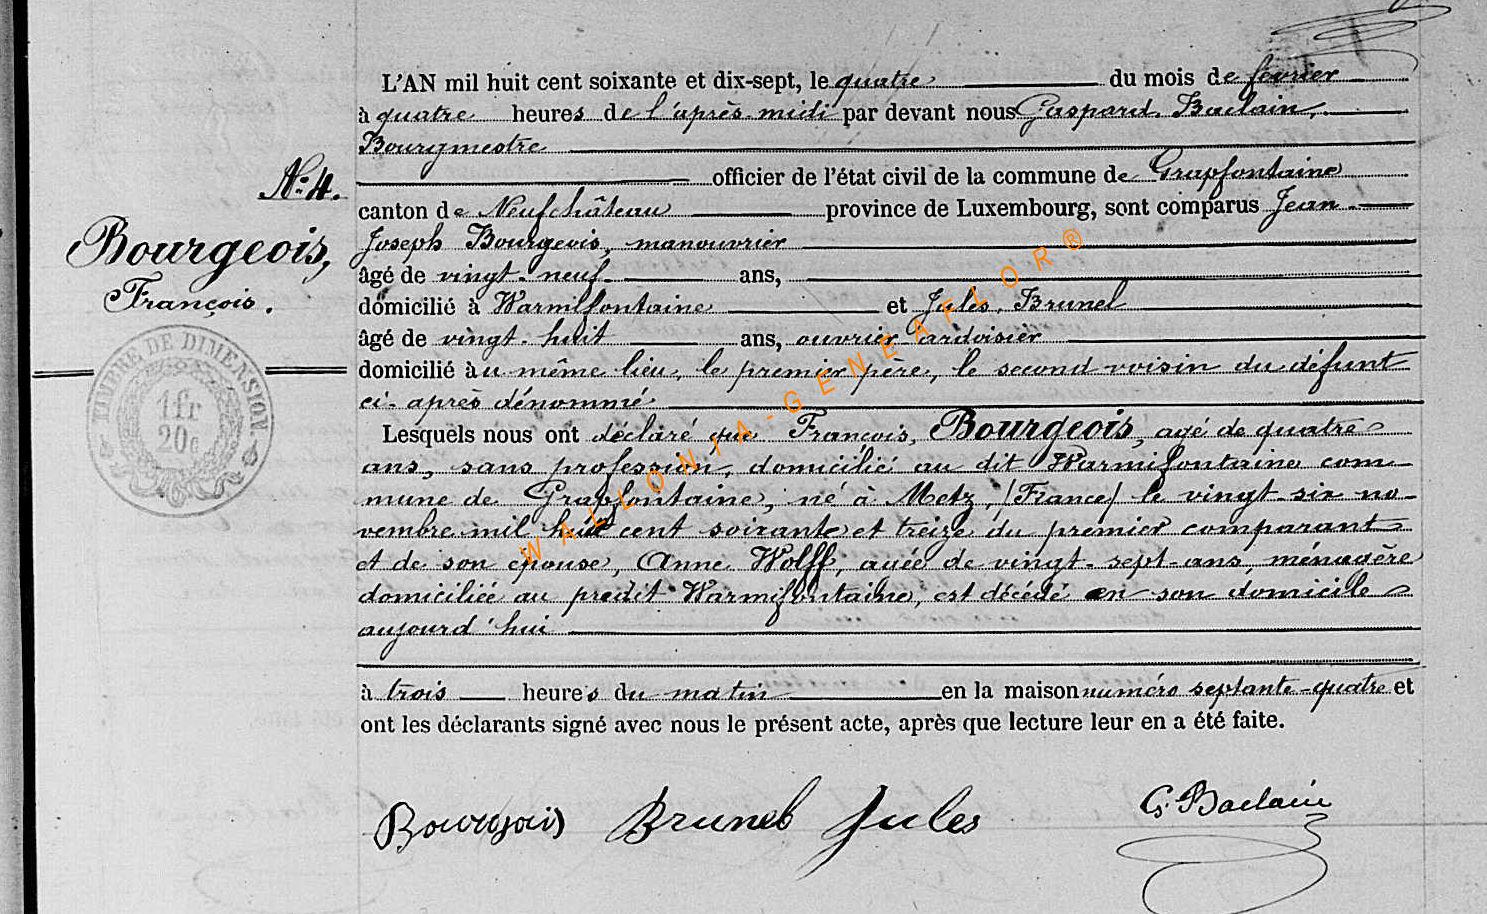 L'AN mil huit cent soixante et dix-sept, le quatre du mois de février
à quatre heures de l'après-midi par devant nous Gaspard Baclain,
Bourgmestre
officier de l'état civil de la commune de Grapfontaine
canton de Neufchâteau province de Luxembourg, sont comparus Jean
Joseph Bourgeois, manouvrier
âgé de vingt-neuf ans,
domicilié à Warmifontaine et Jules Brunel
âgé de vingt-huit ans, ouvrier ardoisier
domicilié au même lieu, le premier père, le second voisin du défunt
ci-après dénommé
Lesquels nous ont déclaré que François, Bourgeois, agé de quatre
ans, sans profession, domicilié au dit Warmifontaine com-
mune de Grapfontaine, né à Metz, (France) le vingt-six no-
vembre mil huit cent soixante et treize du premier comparant
et de son épouse, Anne Wolff, agée de vingt-sept-ans, ménagère
domiciliée au prédit Warmifontaine, est décédé en son domicile
aujourd'hui
à trois heures du matin en la maison numéro septante-quatre et
ont les déclarants signé avec nous le présent acte, après que lecture leur en a été faite.
N° 4.
Bourgeois,
François.
TIMBRE DE DIMENSION
1 fr
20 c
Bourgois Brunel Jules G. Baclain
WALLONIA-GENEAFLOR®